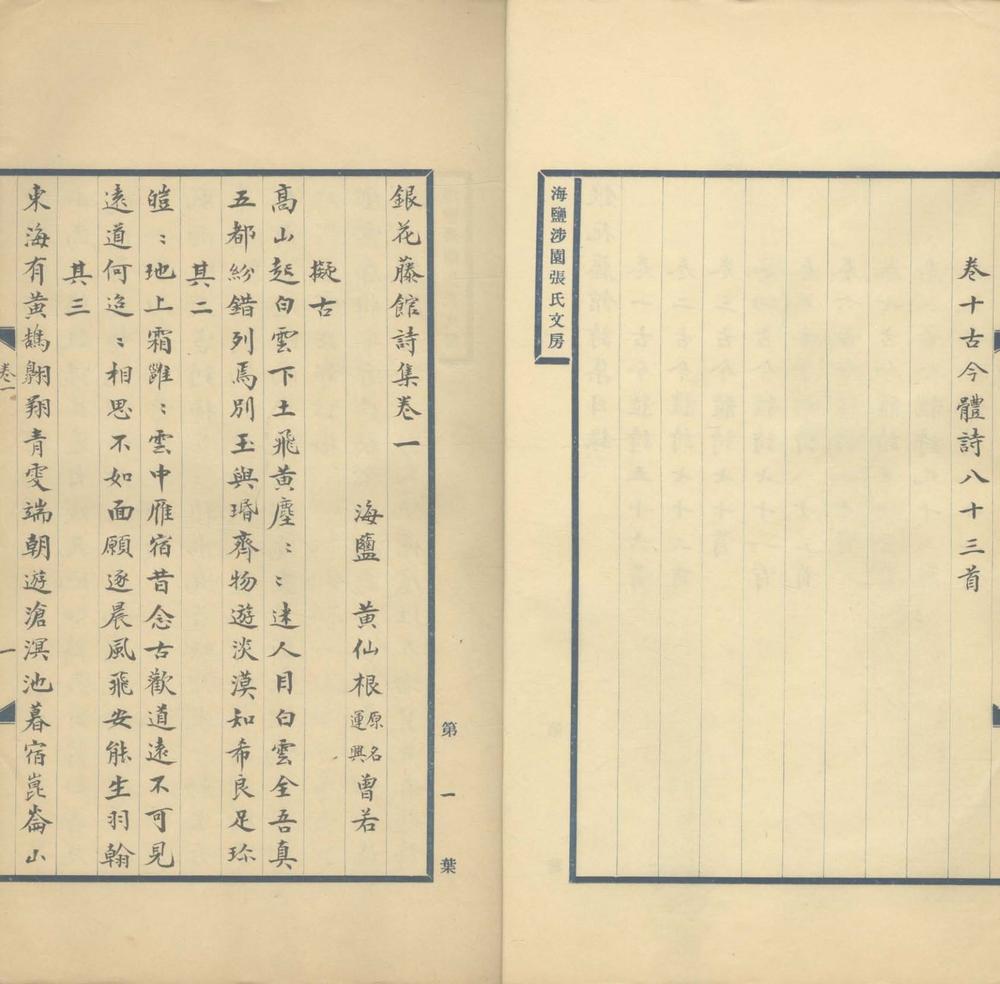 卷十古今體詩八十三首
海鹽涉園張氏文房
銀花藤館詩集卷一
海鹽 黄仙根原名運興曾若
擬古
高山起白雲下土飛黄塵〻〻迷人目白雲全吾真
五都紛錯列焉别玉與珉齊物遊淡漠知希良足珎
其二
皚〻地上霜雝〻雲中雁宿昔念古歡道遠不可見
遠道何迢〻相思不如面願逐晨風飛安能生羽翰
其三
東海有黄鵠翱翔青雯端朝遊滄溟池暮宿崑崙山
卷一
一
第一葉